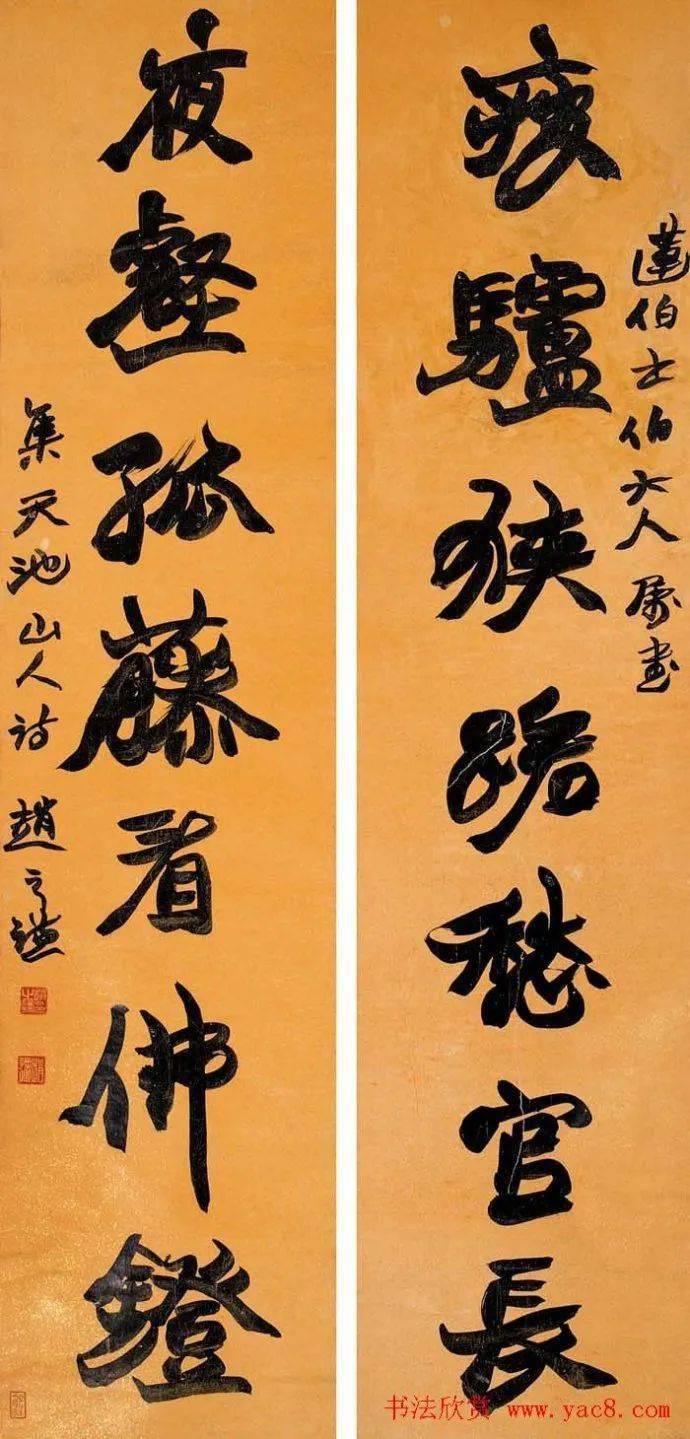 蓮伯士伯大人屬書
疲驢狹路愁官長
夜壑孤藤看佛鐙
集天池山人詩 趙之謙
书法欣赏 www.yac8.com